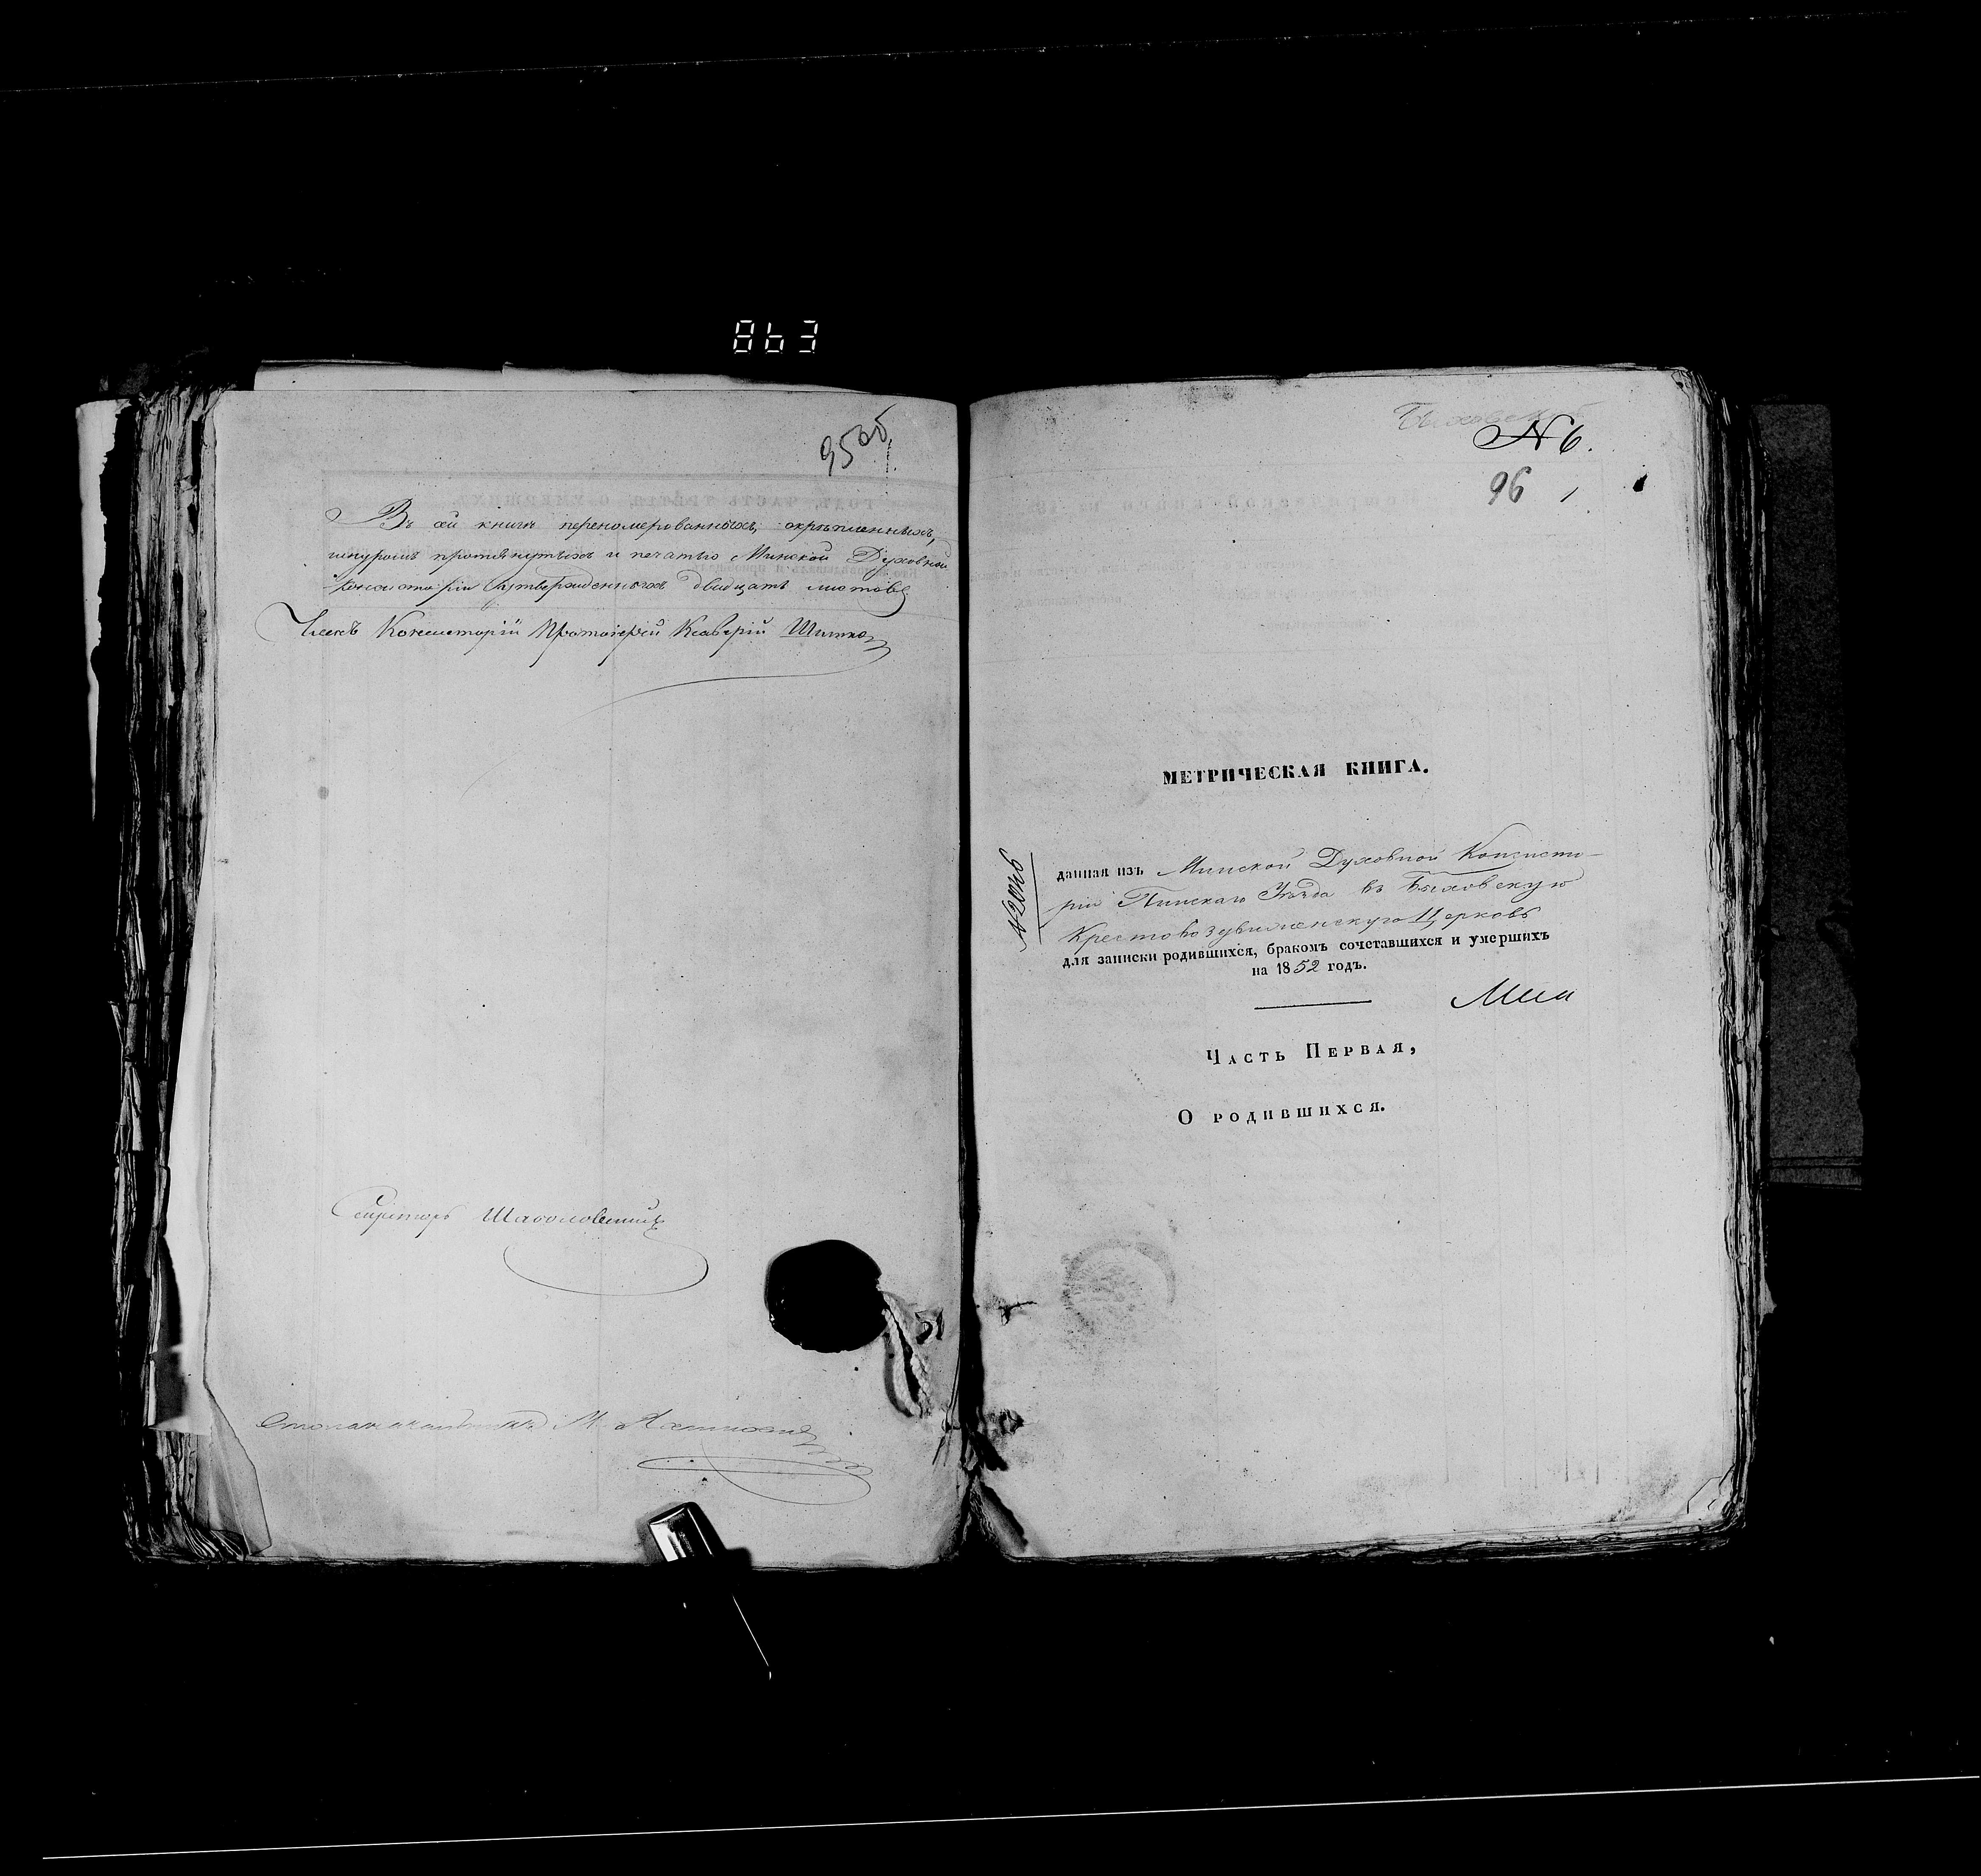 863
95об.
Въ сей книгѣ перенумерованныхъ, скрѣпленныхъ,
шнуромъ протянутыхъ и печатью Минской Духовной
Консисторіи утвержденныхъ двадцать листовъ
Членъ Консисторіи Протоіерей Ксаверій
Секретарь
№ 6.
96 1
МЕТРИЧЕСКАЯ КНИГА.
данная изъ Минской Духовной Консисто-
ріи Пинскаго Уѣзда въ Быховскую
Крестовоздвиженскую Церковь
для записки родившихся, бракомъ сочетавшихся и умершихъ
на 1852 годъ.
Часть Первая,
О родившихся.